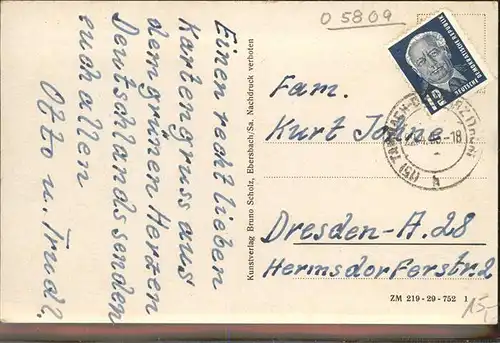 O 5809
Einen recht lieben
Kartengruss aus
dem grünen Herzen
Deutschlands senden
euch allen
Otto u. Trudl.
Kunstverlag Bruno Scholz, Ebersbach/Sa. Nachdruck verboten
DEUTSCHE
DEMOKRATISCHE REPUBLIK
(15) TAMBACH-
-18
Fam.
Kurt Jähne
Dresden-A. 28
Hermsdorferstr. 2
ZM 219-29-752 1